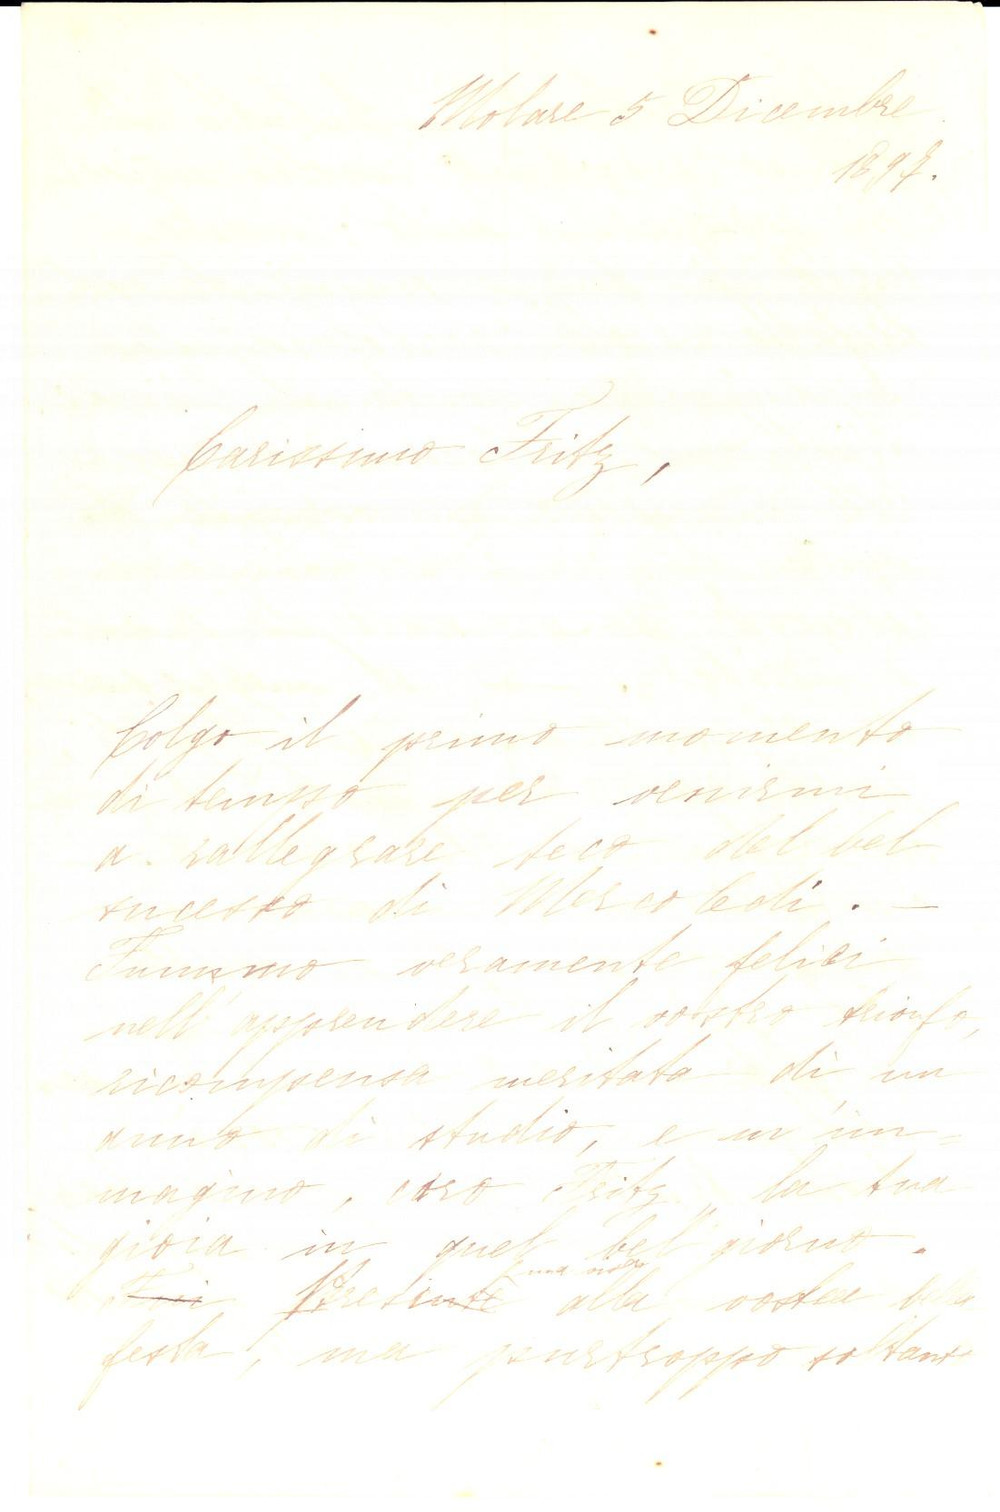 Molare 5 Dicembre
189
Carissimo Fritz,
Colgo il primo momento
di tempo per venirmi
a rallegrare teco del bel
sucesso di Mercoledì. —
Fummo veramente felici
nell'apprendere il vostro trionfo,
ricompensa meritata di un
anno di studio, e m'im=
magino, caro Fritz, la tua
gioia in quel bel giorno.
Fui Presente una volta alla vostra bella
festa, ma purtroppo soltanto